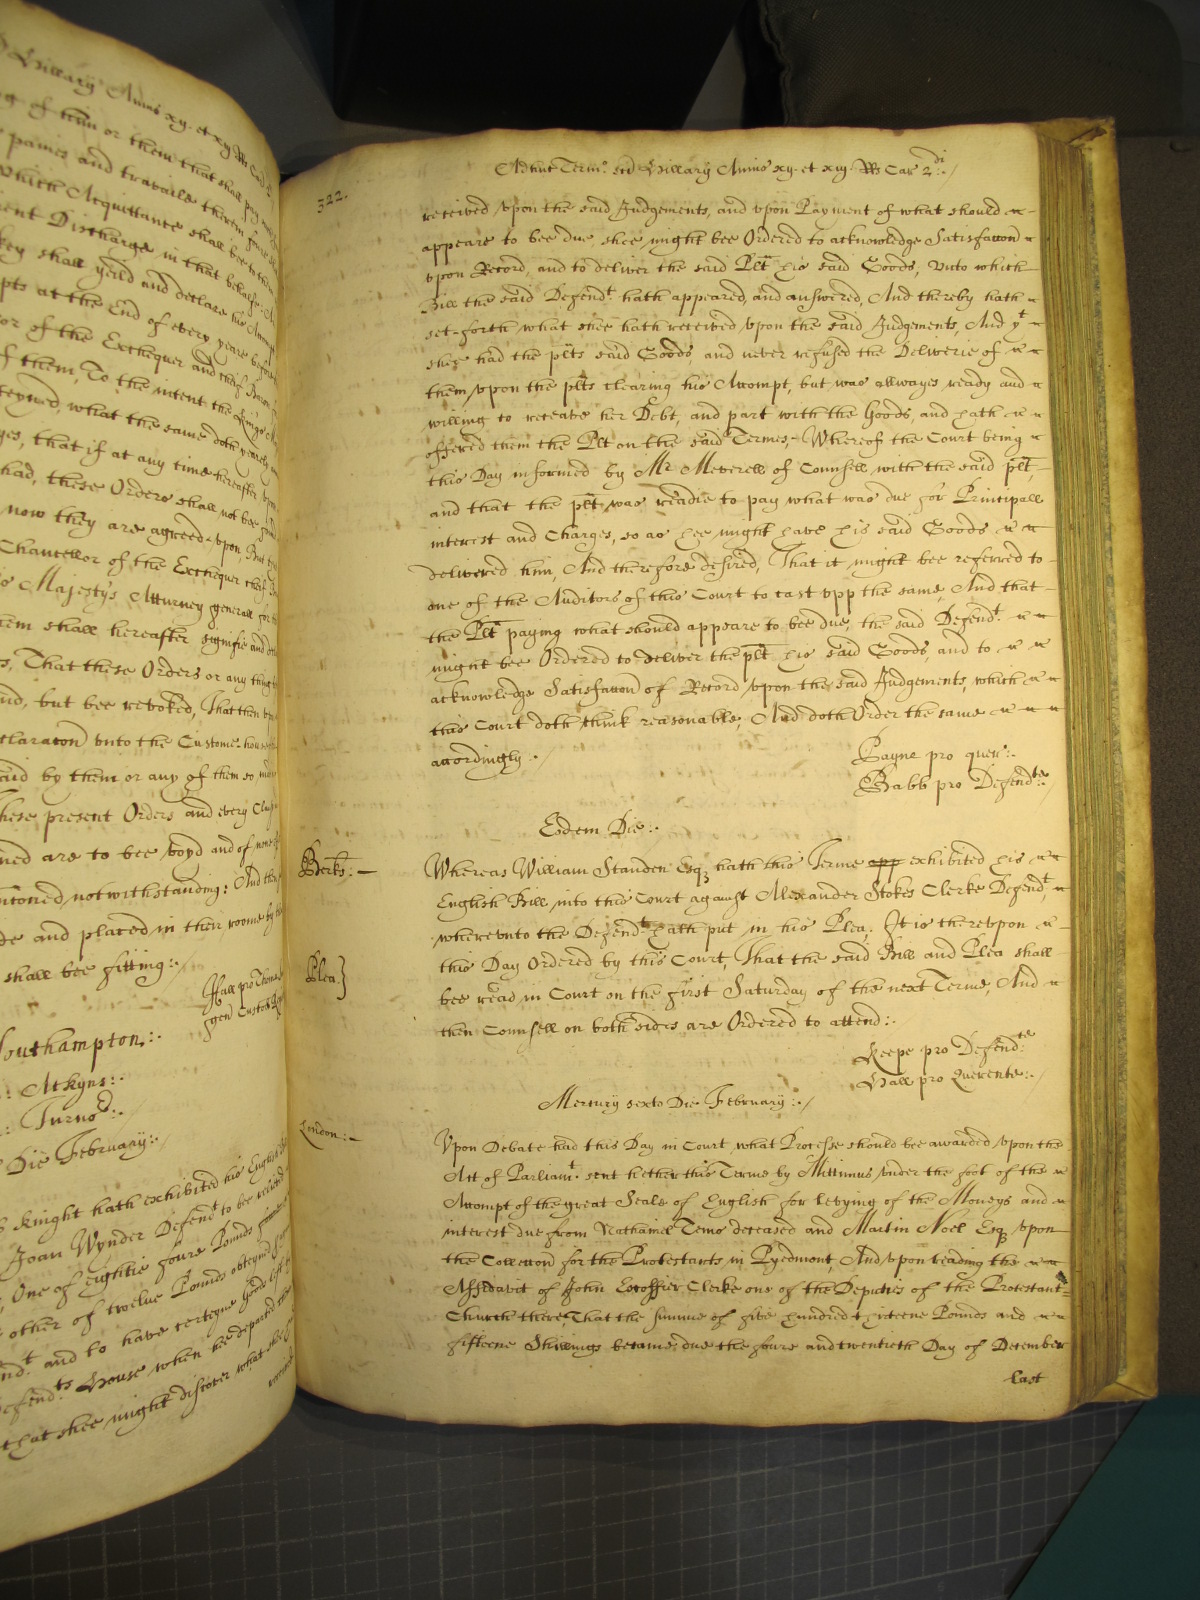 Hillary Annis xv. et xvj RRs Car 2
g of him or them that shall pay
paines and travaile them
which Acquittance shall bee to
ent Discharge in that behalfe
they shall yeild and declare his Accompt
pts at the End of every yeare before
or of the Exchequer and cheif Baron
f them, To the intent the Kings
teyned what the same doth yearely
ges, that if at any time hereafter
had, these Orders shall not bee
now they are agreed upon, But
Chancellor of the Exchequer cheif
is Majestys Atturney generall for
hem shall hereafter signifie and
s, That these Orders or any thing
nd, but bee revoked, That then
claracon vnto the Custome house
aid by them or any of them so
hese present Orders and every
ned are to bee voyd and of none
ntioned notwithstanding: And
de and placed in their roome by
shall bee fitting:
Southampton:
Atkyns:
Turnor:
Die February:
Knight hath exhibited his English
Joan Wynder Defendt to bee releived
One of eightie foure Pounds
other of twelve Pounds obteyned
ndt and to have certeyne goods
efendts House when hee departed
that shee might discover what shee
received
322. Adhuc Termo sci Hillary Annis xv. et xvj RRs Car 2di
received vpon the said Judgements, and vpon Payment of what should
appeare to bee due shee might bee Ordered to acknowledge Satisfaccon
vpon Record, and to deliver the said Plt his said Goods, Vnto which
Bill the said Defendt hath appeared and answered, And thereby hath
set forth what shee hath received vpon the said Judgements, And yt
shee had the plts said Goods, and never refused the Deliverie of
them vpon the plts clearing his Accompt, but was allwayes ready and
willing to receave her Debt, and part with the Goods, and hath
offered them the Plt on the said Termes, Whereof the Court being
this Day informed by Mr Meverell of Counsell with the said plt,
and that the plt was readie to pay what was due for Principall
interest and Charges, so as hee might have his said Goods
delivered him, And therefore desired, That it might bee referred to
one of the Auditors of this Court to cast vpp the same, And that
the Plt paying what should appeare to bee due, the said Defendt.
might bee Ordered to deliver the plt his said Goods, and to
acknowledge Satisfaccon of Record vpon the said Judgements, which
this Court doth think reasonable, And doth Order the same
accordingly:
Payne pro quer:
Babb pro Defendte:
Eodem Die:
Berks: Whereas William Standen Esq hath this Terme app exhibited his
English Bill into this Court against Alexander Stokes Clerke Defendt,
wherevnto the Defendt hath put in his Plea, It is therevpon
Plea} this Day Ordered by this Court, That the said Bill and Plea shall
bee read in Court on the first Saturday of the next Terme, And
then Counsell on both sides are Ordered to attend:
Keepe pro Defendte:
Hall pro Querente:
Mercury sexto Die February:
London: Vpon Debate had this Day in Court what Processe should bee awarded vpon the
Act of Parliamt. sent hether this Terme by Mittimus vnder the foot of the
Accompt of the great Seale of English for levying of the Moneys and
interest due from Nathaniel Temo deceased and Martin Noel Esq vpon
the Colleccon for the Protestants in Pyedmont, And vpon reading the
Affidavit of John Escoffier Clerke one of the Deputies of the Protestant
Church there, That the summe of five hundred thirteene Pounds and
fifteene Shillings became due the foure and twentieth Day of December
last